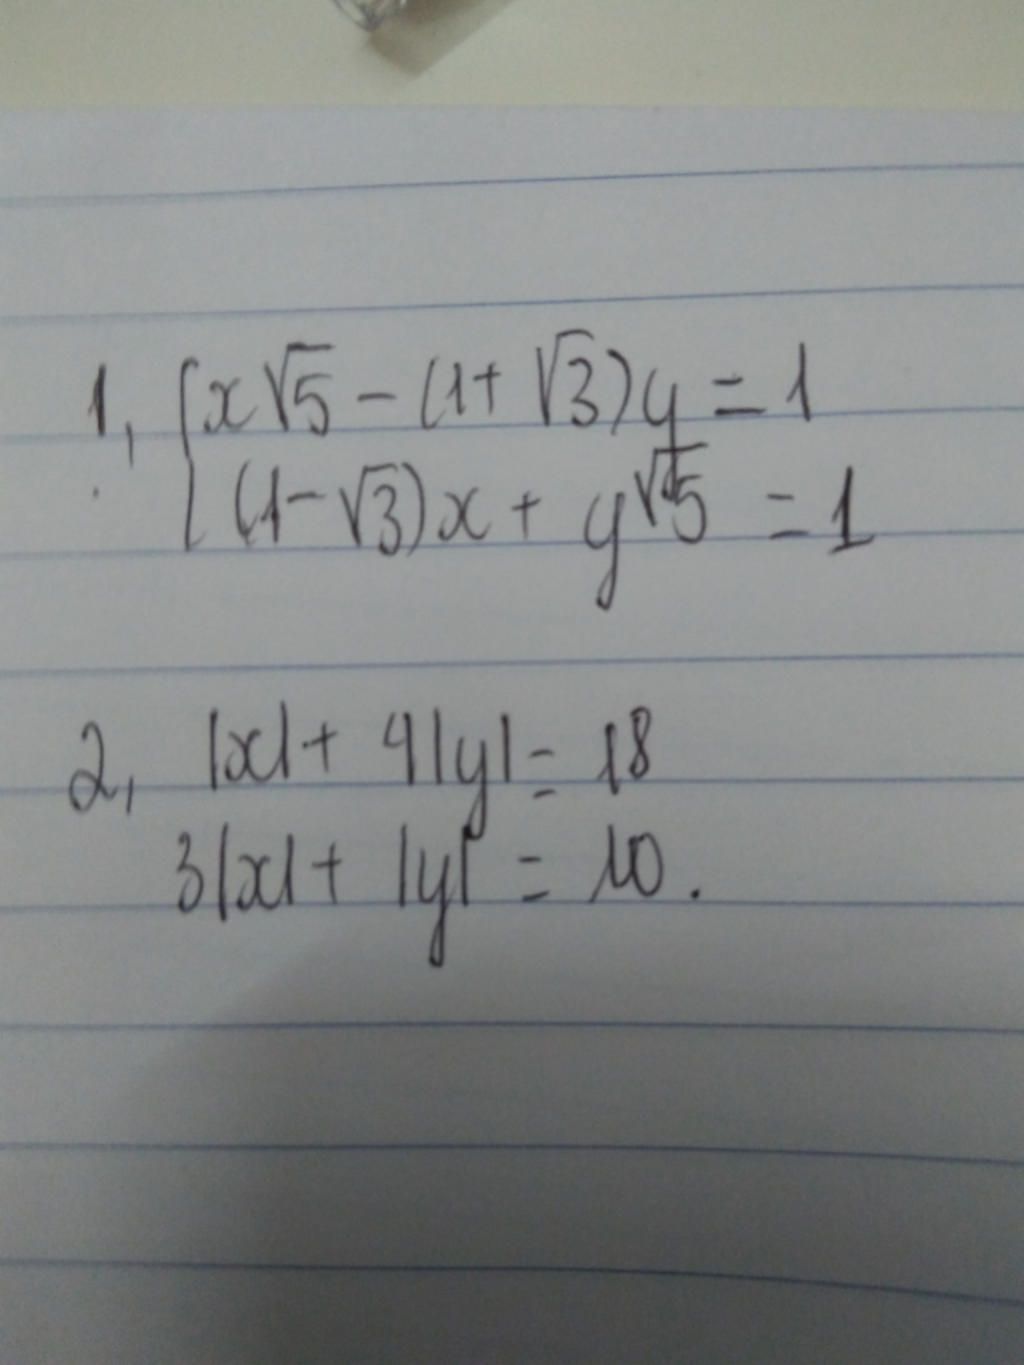 1, { x√5 - (1 + √3)y = 1
(1 - √3)x + y√5 = 1
2, |x| + 4|y| = 18
3|x| + |y| = 10.